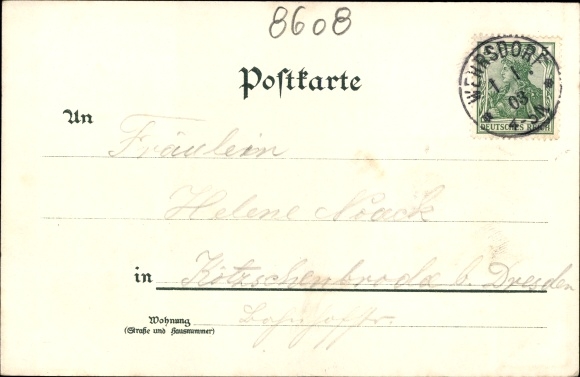 8608
Postkarte
WEHRSDORF
1 1
03
DEUTSCHES REICH
An
Fräulein
Helene Noack
in Kötzschenbroda b. Dresden
Wohnung
(Straße und Hausnummer)
Bahnhofstr.